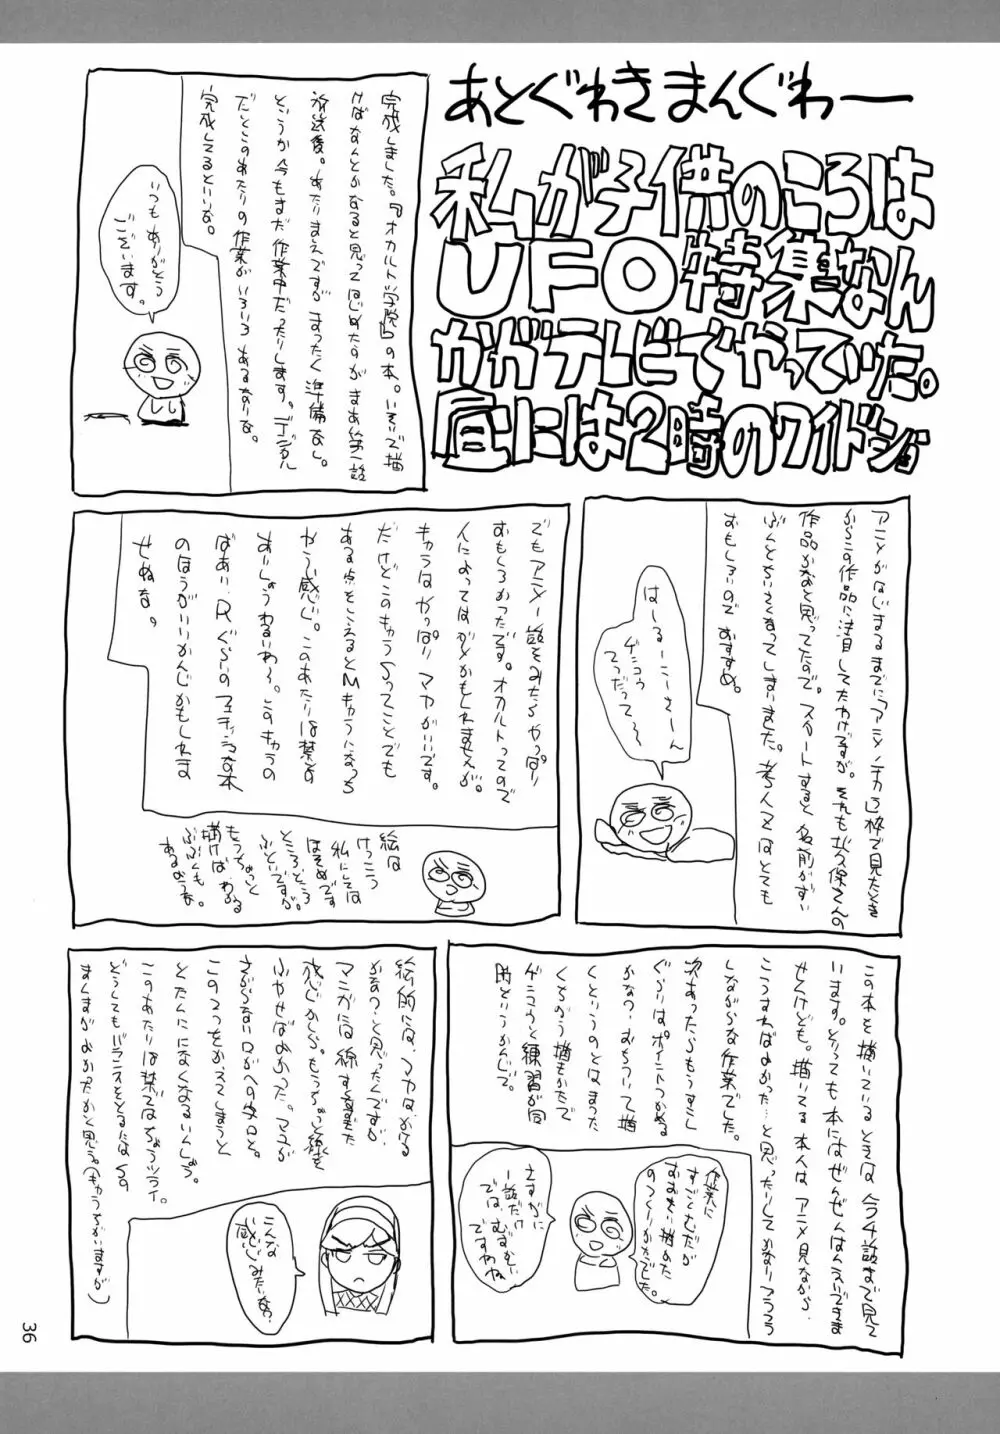 あとぐわきまんぐわー
私が子供のころは
UFO特集なん
かがテレビでやっていた。
昼には2時のワイドショー
完成しました。『オカルト学院』の本。いそいで描
けばなんとかなると思ってはじめたのがまあ第一話
放送後。あたりまえですがまったく準備なし。
というか今もまだ作業中だったりします。デジタル
だとこのあたりの作業がいろいろあるなりな。
完成してるといいな。
いつもありがとう
ございます。
アニメがはじまるまでに「アニメノチカラ」枠で見たとき
からこの作品に注目してたわけですが。それも
作品かなあと思ってたので。スタートすると名前がすい
ぶんとでかくなってしまいました。考人文はとても
おもしろいのでおすすめ。
はーるーこーさーん
ゲミコウ
てつだって〜
でもアニメ一話をみたらやっぱり
おもしろかったです。オカルトってので
人によってはダメかもしれませんが。
キャラはやっぱりマヤがいいです。
だけどこのキャラSってことでも
ある点をこえるとMキャラになっち
やう感じ。このあたりは禁との
あいしょうわるいわ〜。このキャラの
ばあい、Rぐらいのフェチっぽな本
のほうがいいかんじかもしれま
せぬな。
絵は
けっこう
私にしては
ほそめです
ところどころ
ふといですが。
もうちょっと
描けばわかる
ぶぶんも
あるかもな
この本を描いているときは今4話まで見て
います。とっても本にはぜんぜんはんえいできま
せんけども。描いてる本人はアニメ見ながら
こうすればよかった…と思ったりしてかなりフラフラ
しながらな作業でした。
次あったらもうすこし
ぐらいはポイントつかめる
かなっ。おちついて描
くというのとはまった
くちがう描もかたで
ゲミコウと練習が同
時というかんじで。
作業に
すごくむだが
おおすぎ
のつくりかたでした。
さすがに
一話だけ
ではむずかしい
ですわね
絵的には、マヤはかける
かなっ…と思ったんですが
マンガには線する真まった
感じかしら。もうちょっと線を
ふやせばよかった。マユが
さがらない口がへの字口と。
この2つをかえてしまうと
とたんになくなるいんしょう。
このあたりは禁ではちょっツライ。
どうしてもバランスをとるにはSの
ましまがよかったかと思う。(キャラちがいますが)
こんな
感じみたいなっ
36